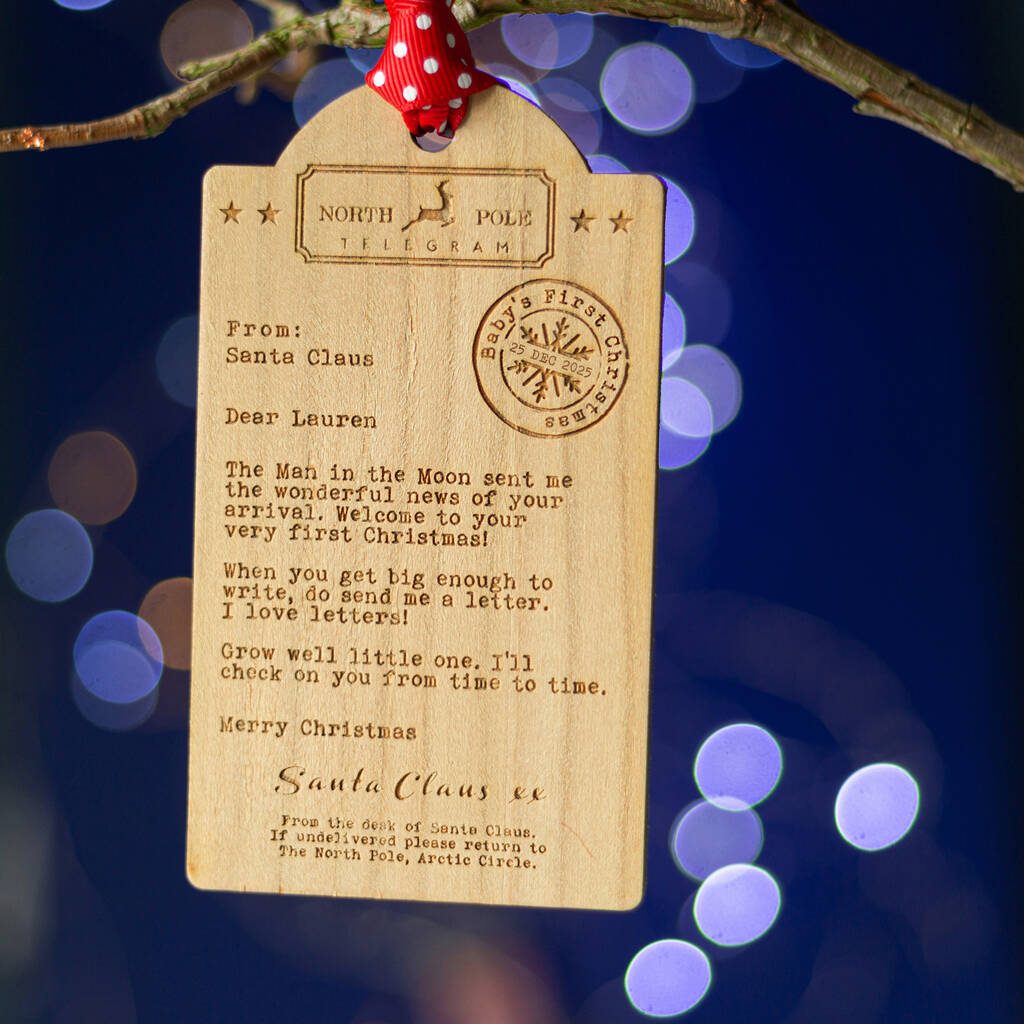 NORTH POLE
TELEGRAM
Baby's First Christmas
25 DEC 2025
From:
Santa Claus
Dear Lauren
The Man in the Moon sent me
the wonderful news of your
arrival. Welcome to your
very first Christmas!
When you get big enough to
write, do send me a letter.
I love letters!
Grow well little one. I'll
check on you from time to time.
Merry Christmas
Santa Claus xx
From the desk of Santa Claus.
If undelivered please return to
The North Pole, Arctic Circle.